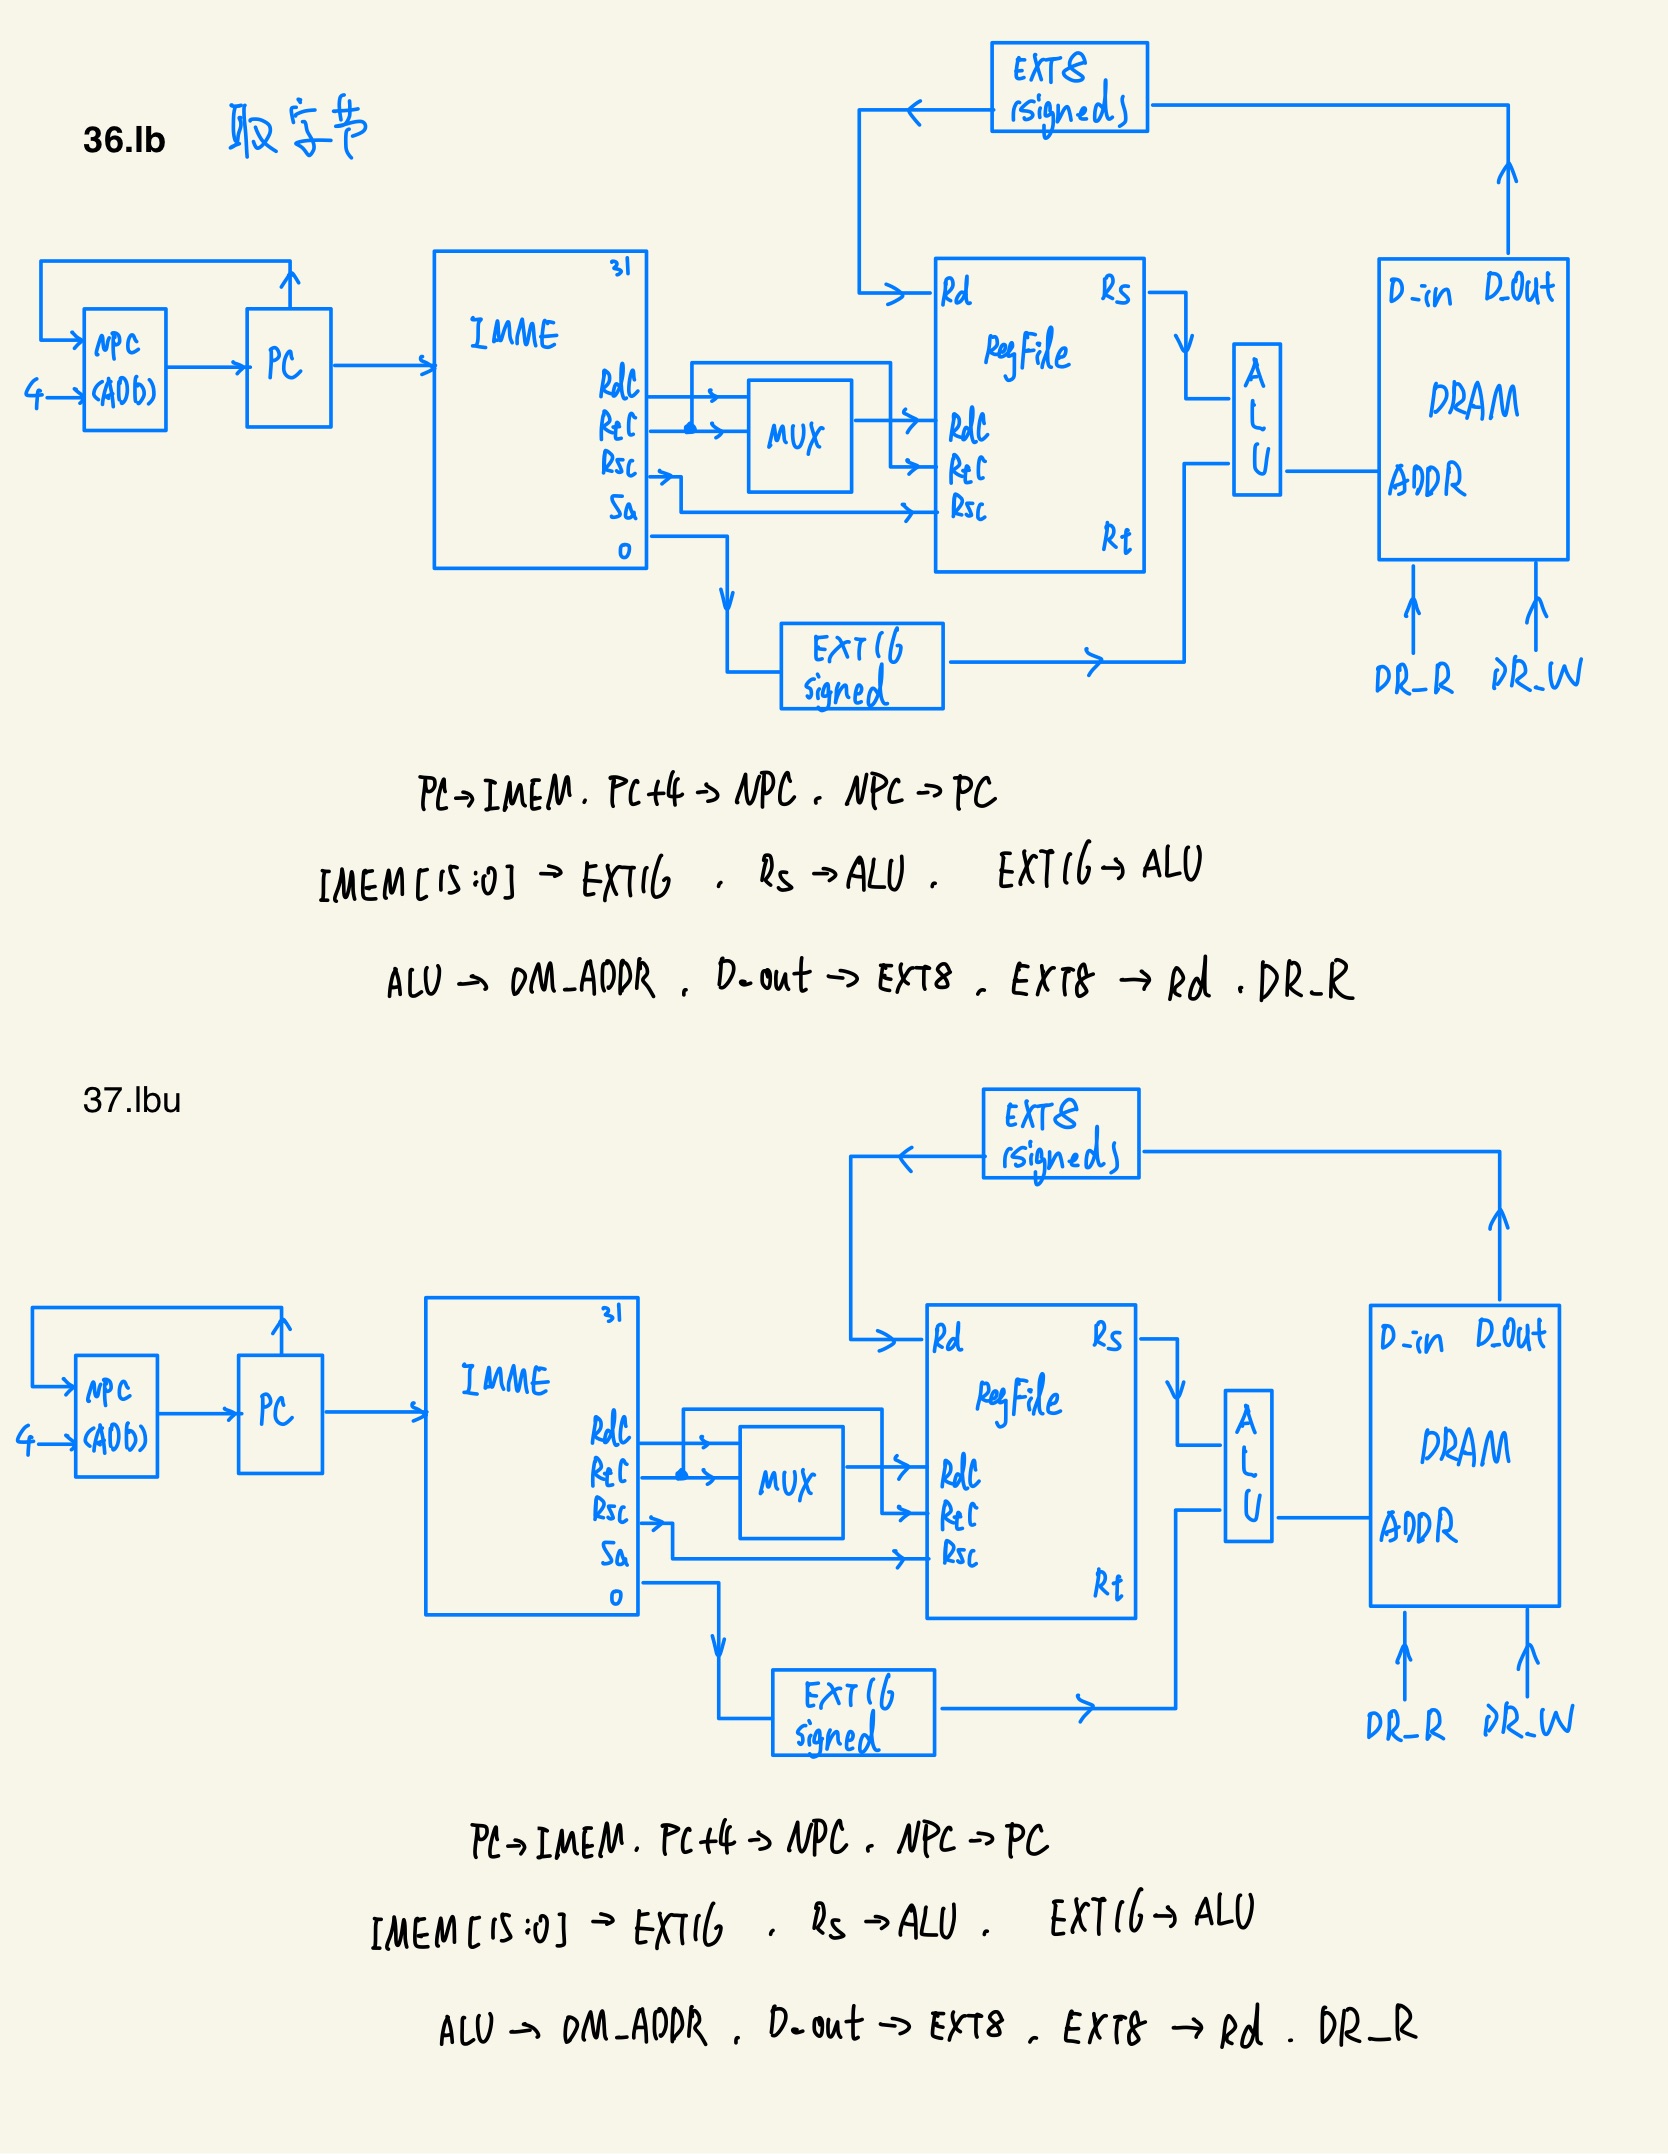 36.lb 取字节
EXT8
(signed)
NPC
(ADD)
4
PC
IMME
31
RdC
RtC
Rsc
Sa
0
MUX
Rd
Rs
RegFile
RdC
RtC
Rsc
Rt
A
L
U
D_in D_Out
DRAM
ADDR
DR_R DR_W
EXT16
signed
PC→IMEM. PC+4→NPC. NPC→PC
IMEM[15:0]→EXT16. Rs→ALU. EXT16→ALU
ALU→DM_ADDR. D_out→EXT8. EXT8→Rd. DR_R
37.lbu
EXT8
(signed)
NPC
(ADD)
4
PC
IMME
31
RdC
RtC
Rsc
Sa
0
MUX
Rd
Rs
RegFile
RdC
RtC
Rsc
Rt
A
L
U
D_in D_Out
DRAM
ADDR
DR_R DR_W
EXT16
signed
PC→IMEM. PC+4→NPC. NPC→PC
IMEM[15:0]→EXT16. Rs→ALU. EXT16→ALU
ALU→DM_ADDR. D_out→EXT8. EXT8→Rd. DR_R